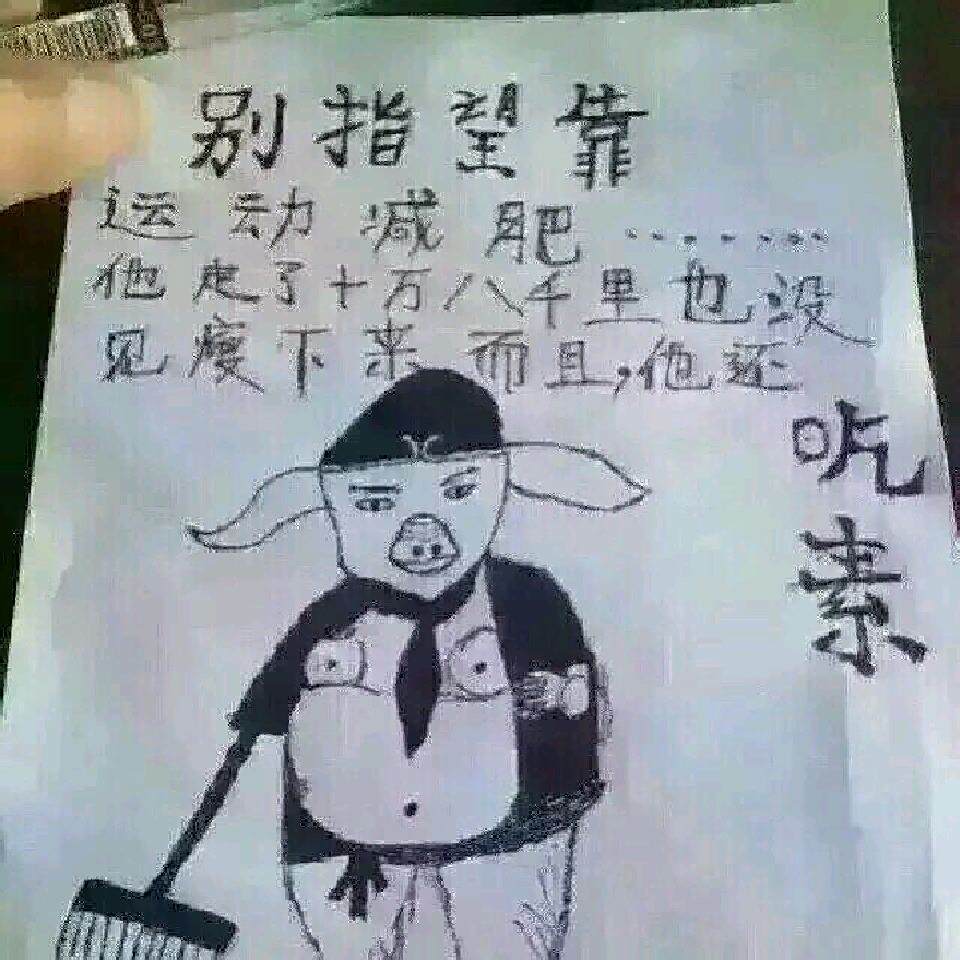 别指望靠
运动减肥.......
他走了十万八千里也没
见瘦下来而且,他还
吃
素